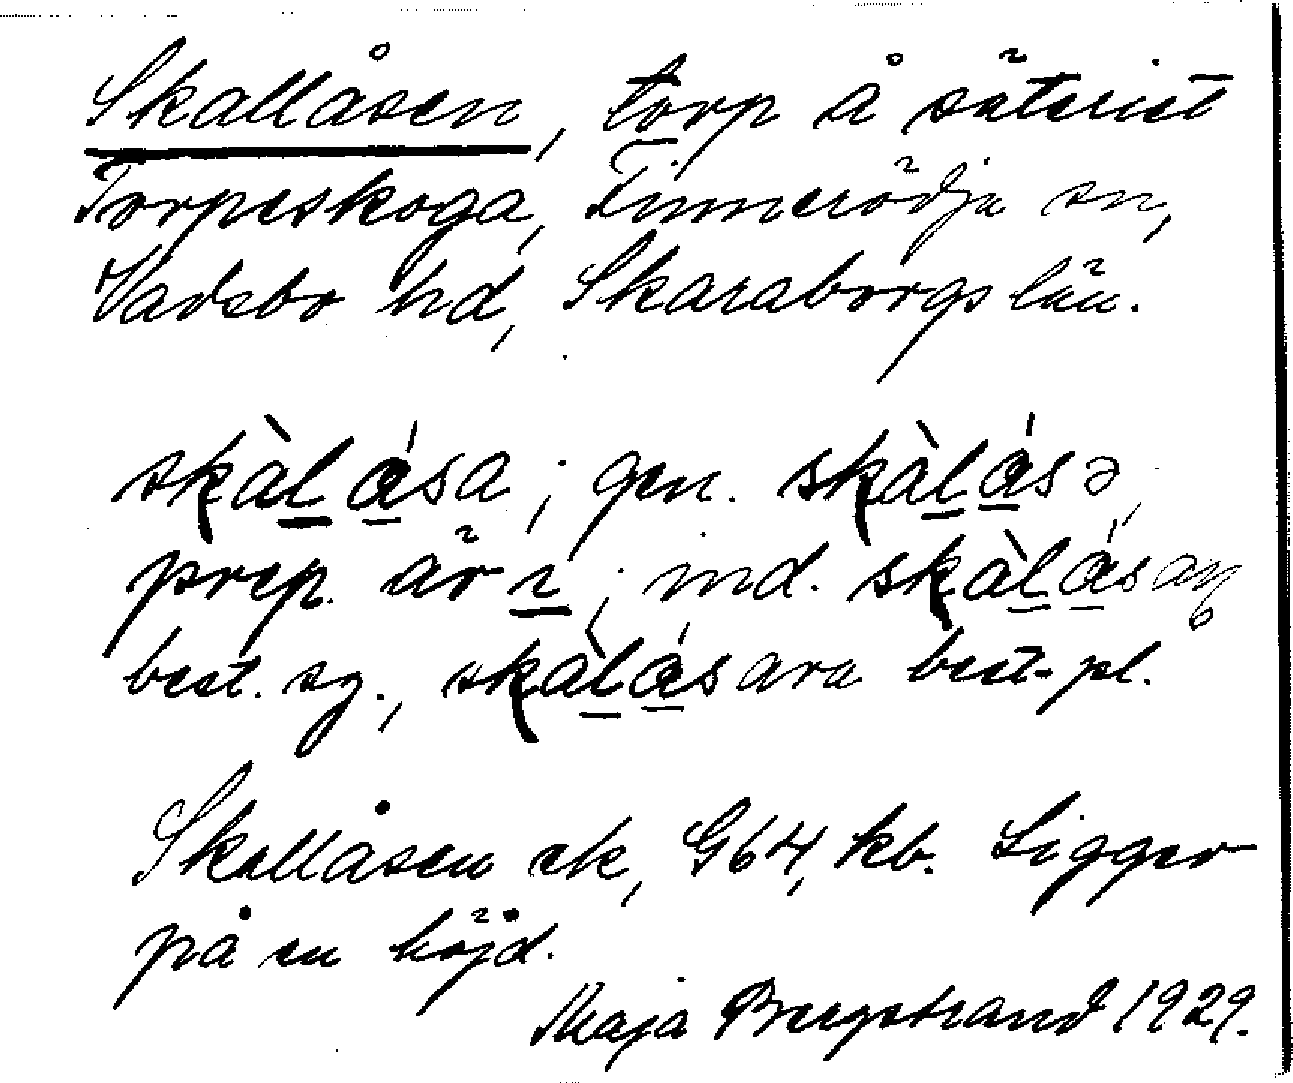 Skallåsen, torp å säteriet
Torpeskoga, Finnerödja sn,
Vadsbo hd, Skaraborgs län.
skàlása; gen. skàlásə,
prep. är ı; ind. skàlásaŋ
best. sg., skàlásara best. pl.
Skallåsen ek, G64, kb. Ligger
på en höjd.
Maja Bergstrand 1929.